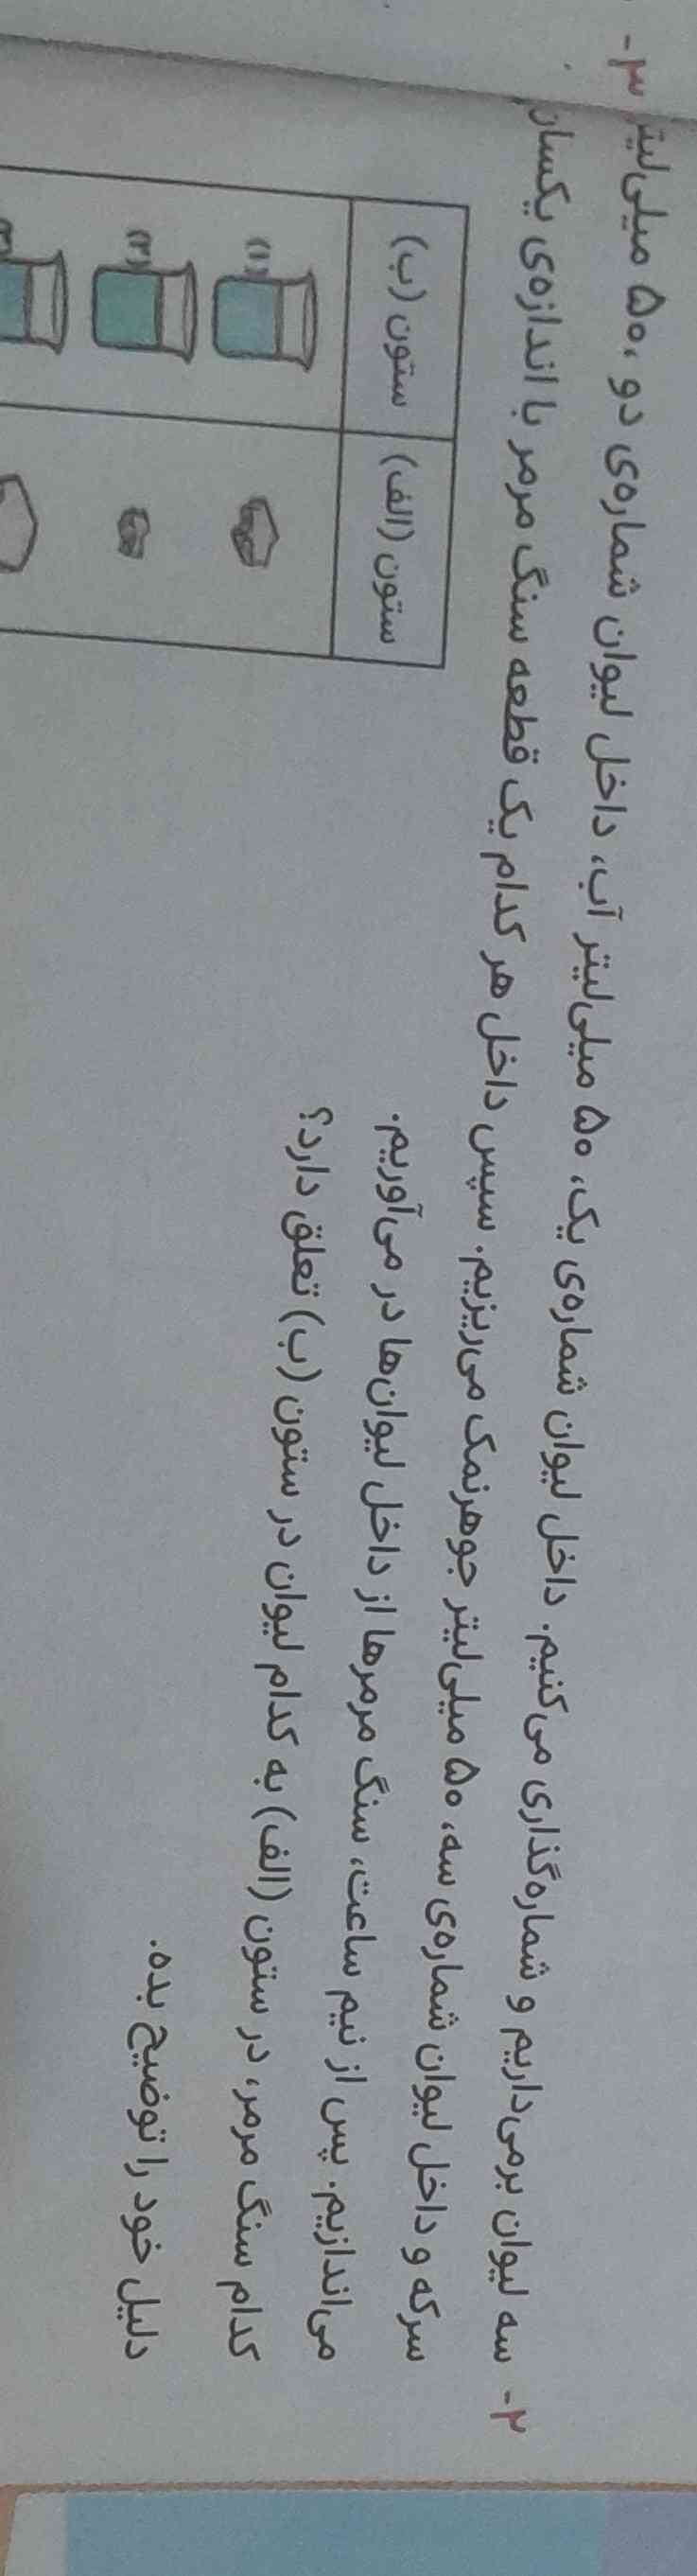 ۳-
۲- سه لیوان برمی‌داریم و شماره‌گذاری می‌کنیم. داخل لیوان شماره‌ی یک، ۵۰ میلی‌لیتر آب، داخل لیوان شماره‌ی دو، ۵۰ میلی‌لیتر
سرکه و داخل لیوان شماره‌ی سه، ۵۰ میلی‌لیتر جوهرنمک می‌ریزیم. سپس داخل هر کدام یک قطعه سنگ مرمر با اندازه‌ی یکسان
می‌اندازیم. پس از نیم ساعت، سنگ مرمرها از داخل لیوان‌ها در می‌آوریم.
کدام سنگ مرمر، در ستون (الف) به کدام لیوان در ستون (ب) تعلق دارد؟
دلیل خود را توضیح بده.
ستون (الف) ستون (ب)
(۱)
(۲)